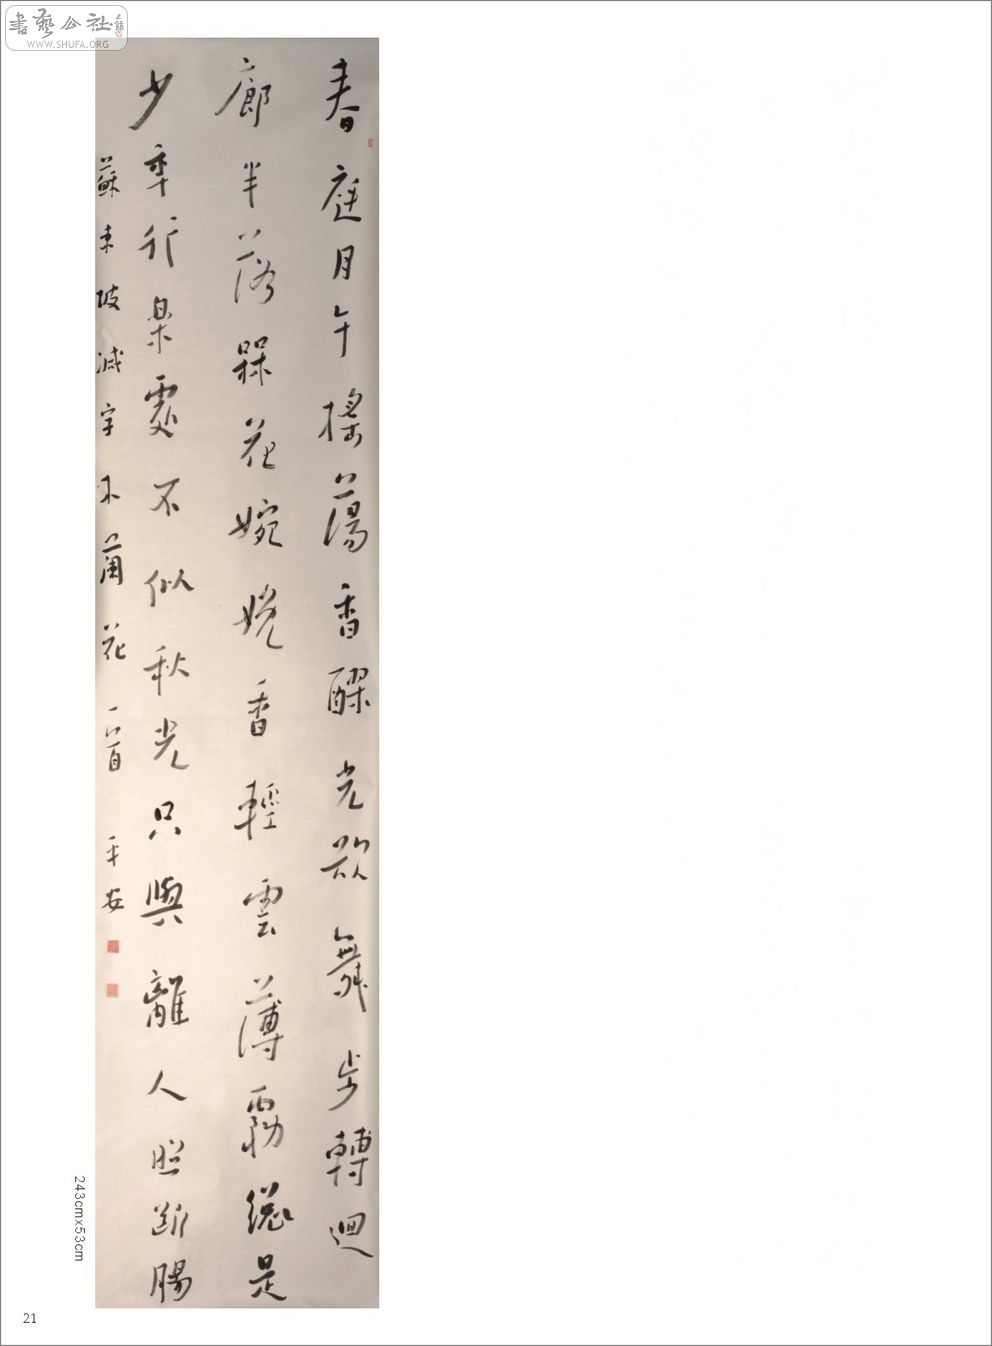 書藝公社
WWW.SHUFA.ORG
春庭月午搖蕩香醪光欲舞步轉迴
廊半落槑花婉娩香輕雲薄霧總是
少年行樂處不似秋光只與離人照斷腸
蘇東坡減字木蘭花一首 平安
243cmx53cm
21